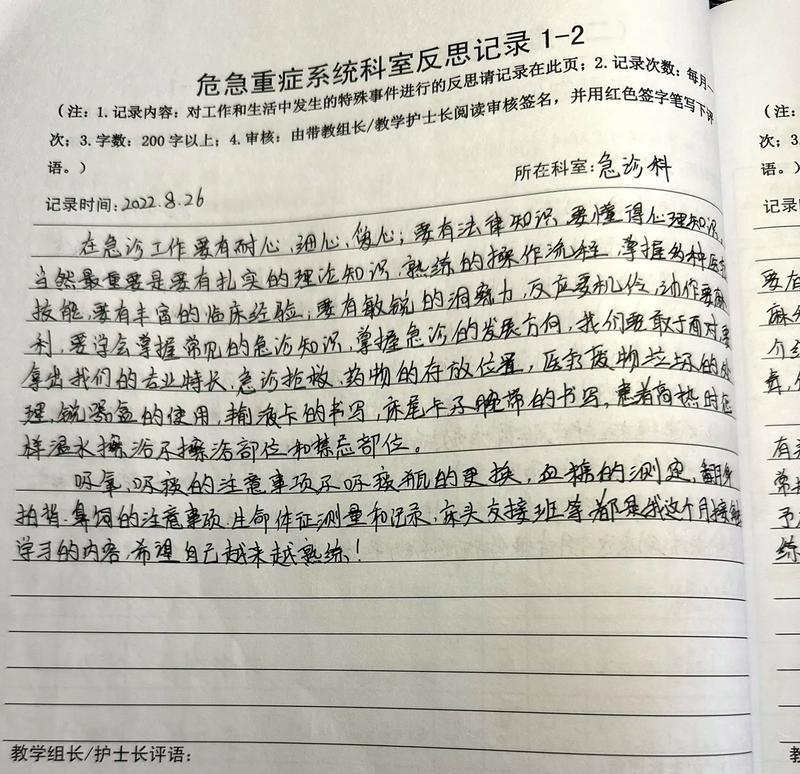 危急重症系统科室反思记录 1-2
（注：1.记录内容：对工作和生活中发生的特殊事件进行的反思请记录在此页；2.记录次数：每月一
次；3.字数：200字以上；4.审核：由带教组长/教学护士长阅读审核签名，并用红色签字笔写下评
语。）
所在科室：急诊科
记录时间：2022.8.26
在急诊工作要有耐心、细心、负心；要有法律知识，要懂得心理知识，
当然最重要是要有扎实的理论知识，熟练的操作流程，掌握各种医疗
技能，要有丰富的临床经验，要有敏锐的洞察力，反应要机伶，动作要麻
利，要学会掌握常见的急诊知识，掌握急诊的发展方向，我们要敢于面对要
拿出我们的专业特长，急诊抢救，药物的存放位置，医疗废物垃圾的处
理，锐器盒的使用，输液卡的书写，床尾卡及腕带的书写，患者高热时怎
样温水擦浴及擦浴部位和禁忌部位。
吸氧，吸痰的注意事项及吸痰瓶的更换，血糖的测定，翻身
拍背，鼻饲的注意事项，生命体征测量和记录，床头交接班等都是我这个月接触
学习的内容，希望自己越来越熟练！
教学组长/护士长评语：
（注：
次；3
语。）
记录
要有